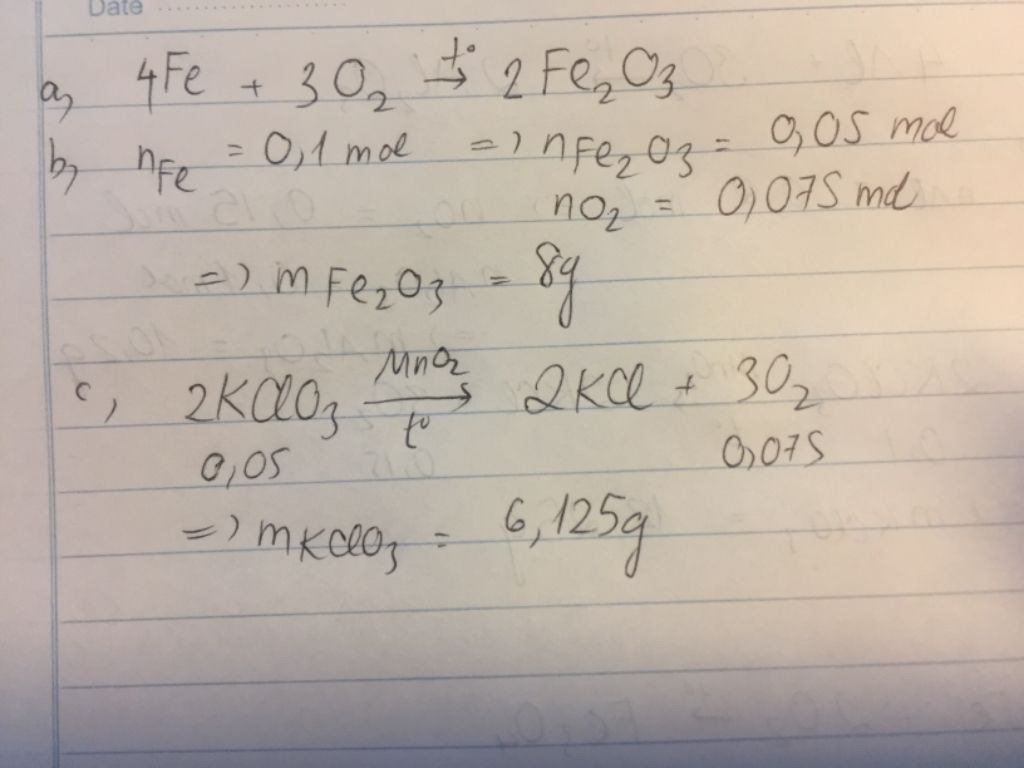 Date
a, 4Fe + 3O₂ →(t°) 2Fe₂O₃
b, nFe = 0,1 mol => nFe₂O₃ = 0,05 mol
nO₂ = 0,075 mol
=> mFe₂O₃ = 8g
c, 2KClO₃ →(MnO₂, t°) 2KCl + 3O₂
0,05 0,075
=> mKClO₃ = 6,125g